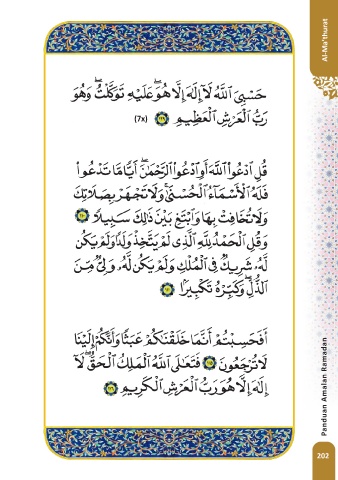 Al-Ma'thurat
حَسْبِيَ ٱللَّهُ لَآ إِلَٰهَ إِلَّا هُوَۖ عَلَيْهِ تَوَكَّلْتُۖ وَهُوَ
رَبُّ ٱلْعَرْشِ ٱلْعَظِيمِ ١٢٩ (7x)
قُلِ ٱدْعُوا۟ ٱللَّهَ أَوِ ٱدْعُوا۟ ٱلرَّحْمَٰنَۖ أَيًّا مَّا تَدْعُوا۟
فَلَهُ ٱلْأَسْمَآءُ ٱلْحُسْنَىٰۚ وَلَا تَجْهَرْ بِصَلَاتِكَ
وَلَا تُخَافِتْ بِهَا وَٱبْتَغِ بَيْنَ ذَٰلِكَ سَبِيلًا ١١٠
وَقُلِ ٱلْحَمْدُ لِلَّهِ ٱلَّذِى لَمْ يَتَّخِذْ وَلَدًا وَلَمْ يَكُن
لَّهُۥ شَرِيكٌ فِى ٱلْمُلْكِ وَلَمْ يَكُن لَّهُۥ وَلِىٌّ مِّنَ
ٱلذُّلِّۖ وَكَبِّرْهُ تَكْبِيرًۢا ١١١
أَفَحَسِبْتُمْ أَنَّمَا خَلَقْنَٰكُمْ عَبَثًا وَأَنَّكُمْ إِلَيْنَا
لَا تُرْجَعُونَ ١١٥ فَتَعَٰلَى ٱللَّهُ ٱلْمَلِكُ ٱلْحَقُّۖ لَآ
إِلَٰهَ إِلَّا هُوَ رَبُّ ٱلْعَرْشِ ٱلْكَرِيمِ ١١٦
Panduan Amalan Ramadan
202